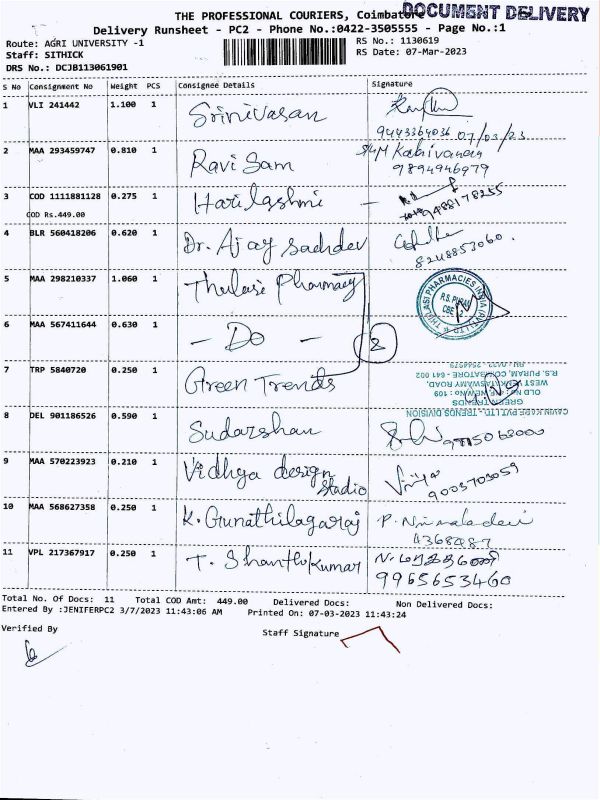 THE PROFESSIONAL COURIERS, Coimbatore
DOCUMENT DELIVERY
Delivery Runsheet - PC2 - Phone No.:0422-3505555 - Page No.:1
Route: AGRI UNIVERSITY -1
RS No.: 1130619
Staff: SITHICK
RS Date: 07-Mar-2023
DRS No.: DCJB113061901
S No Consignment No Weight PCS Consignee Details Signature
1 VLI 241442 1.100 1 Srinivasan
9443364036 07/03/23
2 MAA 293459747 0.810 1 Ravi Sam
9894946979
3 COD 1111881128 0.275 1 Harilashmi - 9488178255
COD Rs.449.00
4 BLR 560418206 0.620 1 Dr. Ajay Sachdev
8248853060.
5 MAA 298210337 1.060 1 Thulasi Pharmacy
THULASI PHARMACIES INDIA (P) LTD
R.S. PURAM
CBE - 2
6 MAA 567411644 0.630 1 - Do - 2
7 TRP 5840720 0.250 1 Green Trends
TRENDS DIVISION
GREEN TRENDS
OLD No: NEW No: 109
WEST VENKATASWAMY ROAD
R.S. PURAM, COIMBATORE - 641 002
8 DEL 901186526 0.590 1 Sudarshan
9 MAA 570223923 0.210 1 Vidhya design
Studio
9003703059
10 MAA 568627358 0.250 1 K. Gunathilagaraj P. Nirmaladevi
4368487
11 VPL 217367917 0.250 1 T. Shanthi Kumar
9965653460
Total No. Of Docs: 11 Total COD Amt: 449.00 Delivered Docs: Non Delivered Docs:
Entered By :JENIFERPC2 3/7/2023 11:43:06 AM Printed On: 07-03-2023 11:43:24
Verified By
Staff Signature